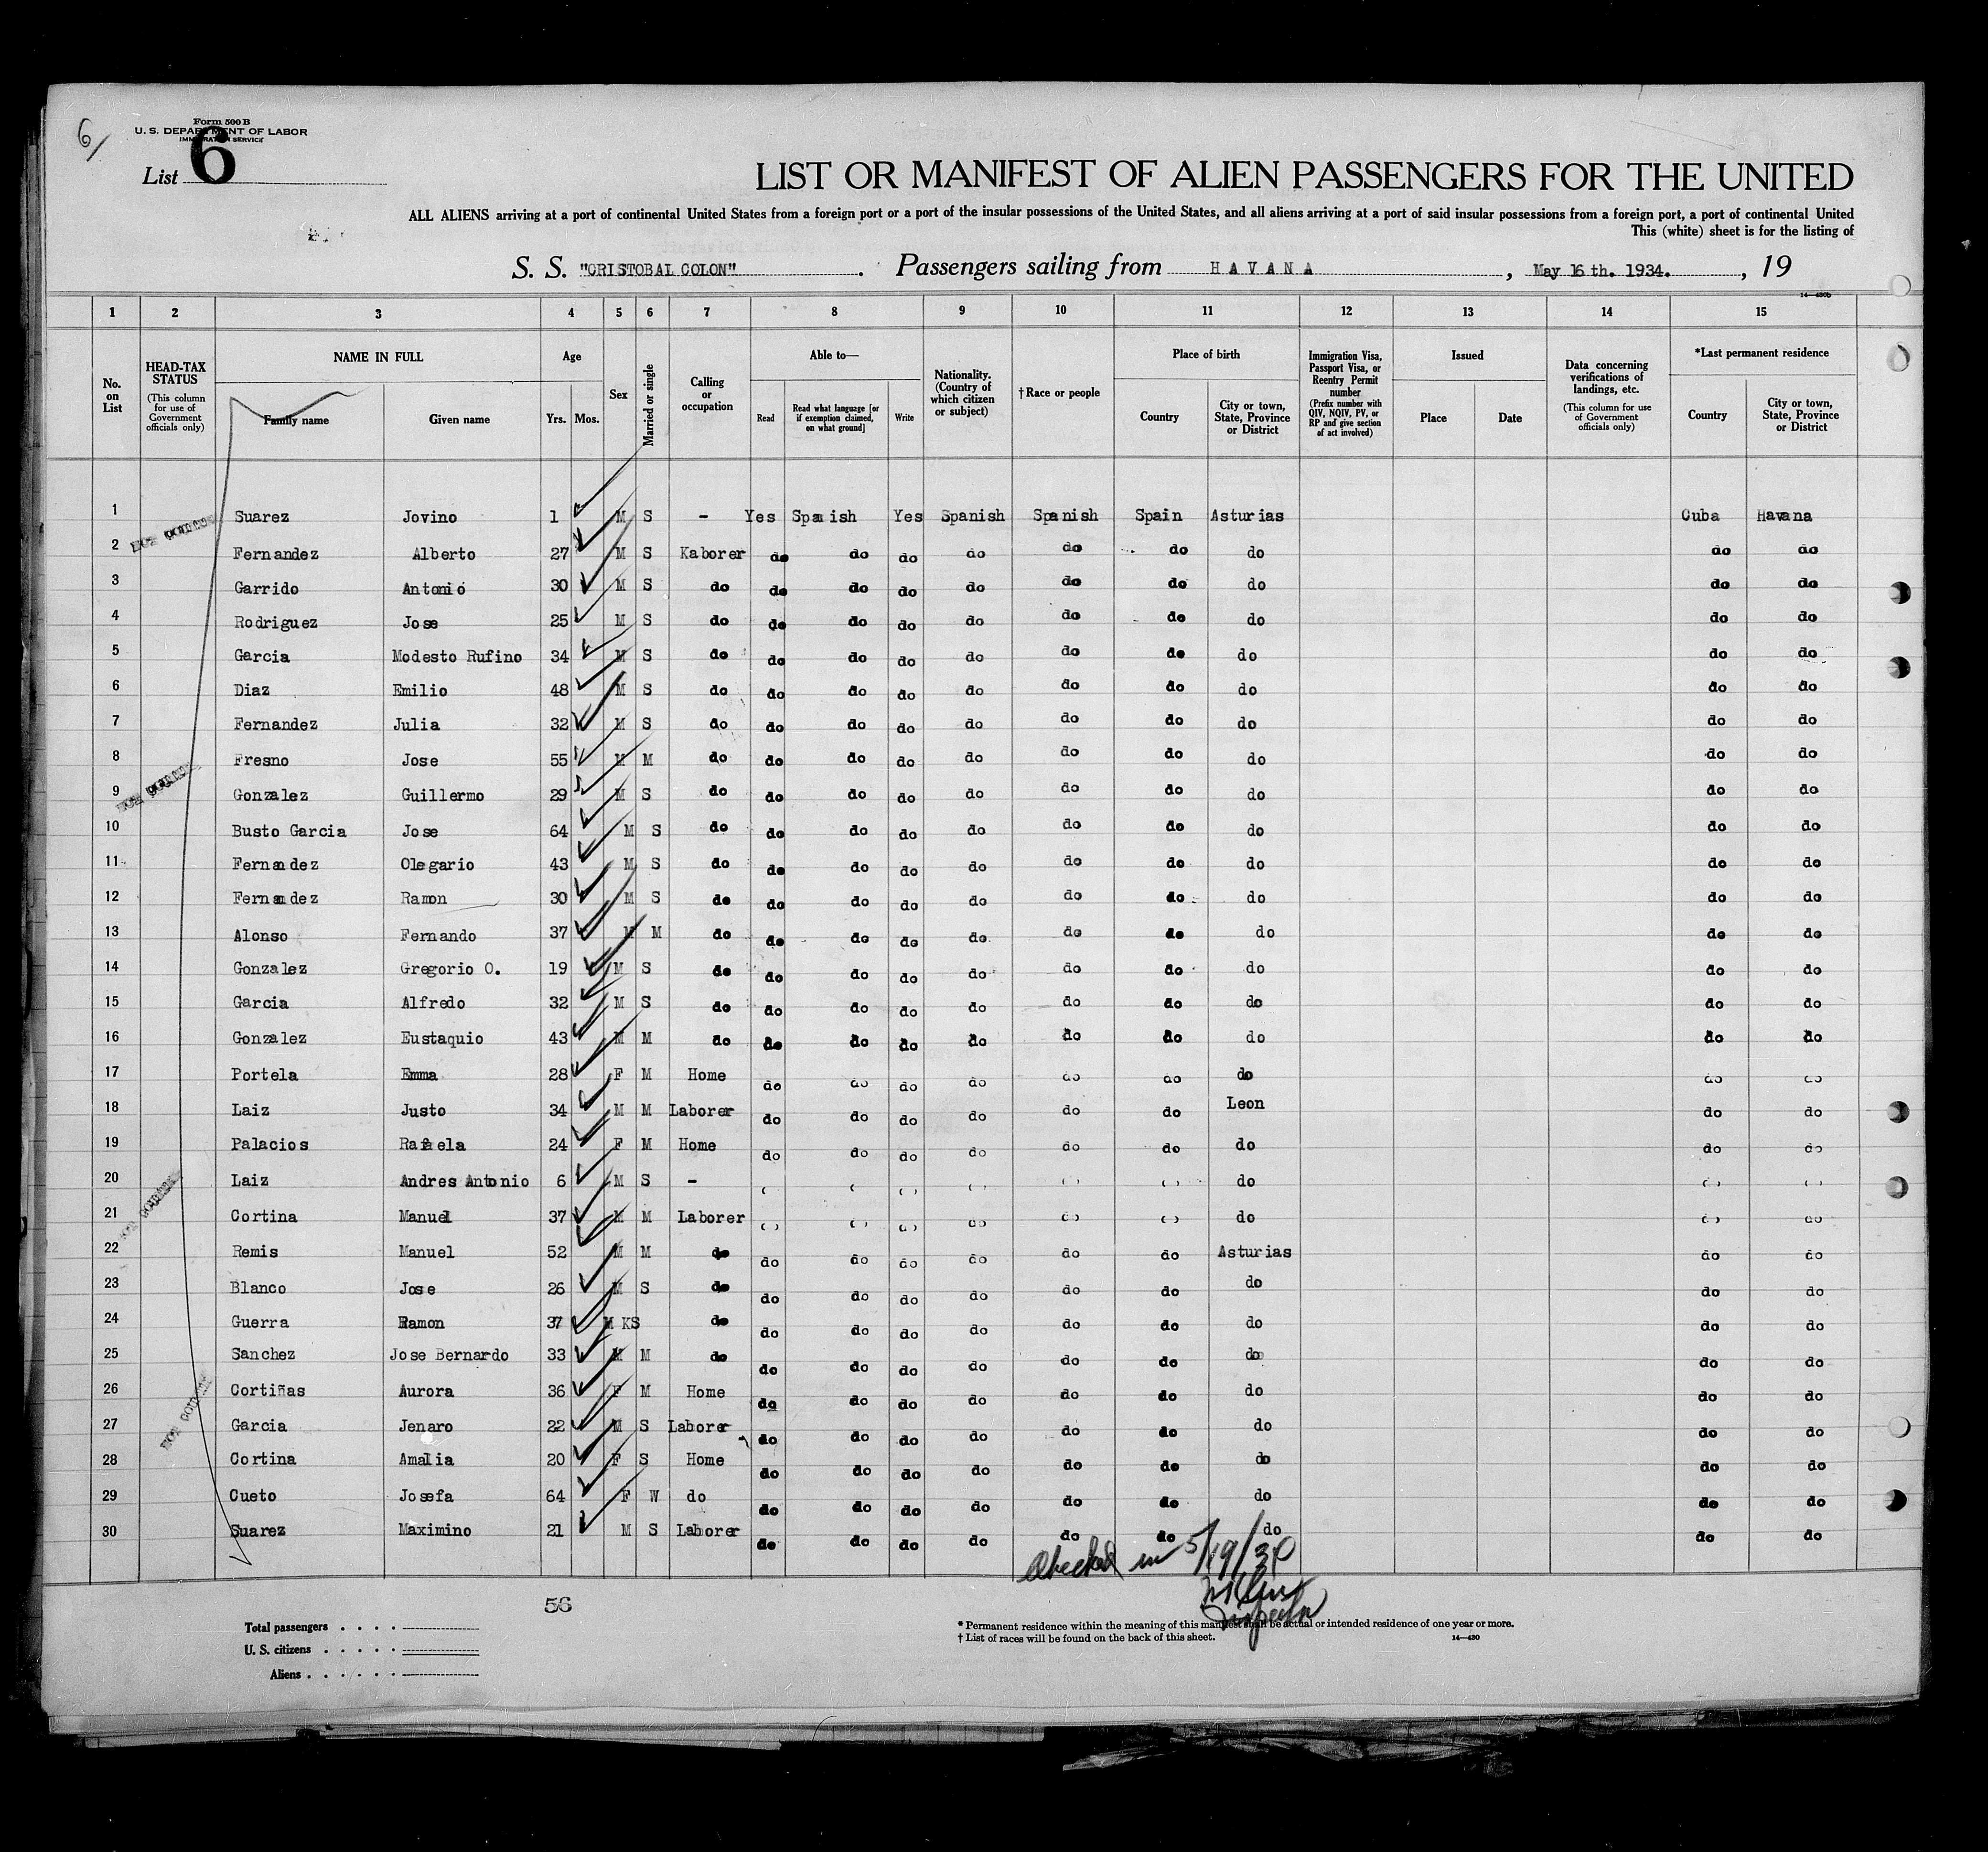 6/
Form 500 B
U. S. DEPARTMENT OF LABOR
IMMIGRATION SERVICE
List 6
LIST OR MANIFEST OF ALIEN PASSENGERS FOR THE UNITED
ALL ALIENS arriving at a port of continental United States from a foreign port or a port of the insular possessions of the United States, and all aliens arriving at a port of said insular possessions from a foreign port, a port of continental United
This (white) sheet is for the listing of
S. S. "CRISTOBAL COLON" . Passengers sailing from HAVANA , May 16 th. 1934. , 19
14—430b
1 2 3 4 5 6 7 8 9 10 11 12 13 14 15
No. on List
HEAD-TAX STATUS (This column for use of Government officials only)
NAME IN FULL
Family name Given name
Age
Yrs. Mos.
Sex
Married or single
Calling or occupation
Able to—
Read
Read what language [or if exemption claimed, on what ground]
Write
Nationality. (Country of which citizen or subject)
† Race or people
Place of birth
Country
City or town, State, Province or District
Immigration Visa, Passport Visa, or Reentry Permit number (Prefix number with QIV, NQIV, PV, or RP and give section of act involved)
Issued
Place Date
Data concerning verifications of landings, etc. (This column for use of Government officials only)
*Last permanent residence
Country
City or town, State, Province or District
1 Suarez Jovino 1 M S - Yes Spanish Yes Spanish Spanish Spain Asturias Cuba Havana
2 Fernandez Alberto 27 M S Kaborer do do do do do do do do do
3 Garrido Antonio 30 M S do do do do do do do do do do
4 Rodriguez Jose 25 M S do do do do do do do do do do
5 Garcia Modesto Rufino 34 M S do do do do do do do do do do
6 Diaz Emilio 48 M S do do do do do do do do do do
7 Fernandez Julia 32 M S do do do do do do do do do do
8 Fresno Jose 55 M M do do do do do do do do do do
9 Gonzalez Guillermo 29 M S do do do do do do do do do do
10 Busto Garcia Jose 64 M S do do do do do do do do do do
11 Fernandez Olegario 43 M S do do do do do do do do do do
12 Fernandez Ramon 30 M S do do do do do do do do do do
13 Alonso Fernando 37 M M do do do do do do do do do do
14 Gonzalez Gregorio O. 19 M S do do do do do do do do do do
15 Garcia Alfredo 32 M S do do do do do do do do do do
16 Gonzalez Eustaquio 43 M M do do do do do do do do do do
17 Portela Emma 28 F M Home do do do do do do do do do
18 Laiz Justo 34 M M Laborer do do do do do do Leon do do
19 Palacios Rafaela 24 F M Home do do do do do do do do do
20 Laiz Andres Antonio 6 M S - do
21 Cortina Manuel 37 M M Laborer do do do do
22 Remis Manuel 52 M M do do do do do do do Asturias do do
23 Blanco Jose 26 M S do do do do do do do do do do
24 Guerra Ramon 37 M KS do do do do do do do do do do
25 Sanchez Jose Bernardo 33 M M do do do do do do do do do do
26 Cortiñas Aurora 36 F M Home do do do do do do do do do
27 Garcia Jenaro 22 M S Laborer do do do do do do do do do
28 Cortina Amalia 20 F S Home do do do do do do do do do
29 Cueto Josefa 64 F W do do do do do do do do do do
30 Suarez Maximino 21 M S Laborer do do do do do do do do do
Checked in 5/19/34
Inspector
56
Total passengers . . . .
U. S. citizens . . . . .
Aliens . . . . . .
* Permanent residence within the meaning of this manifest shall be actual or intended residence of one year or more.
† List of races will be found on the back of this sheet. 14—430